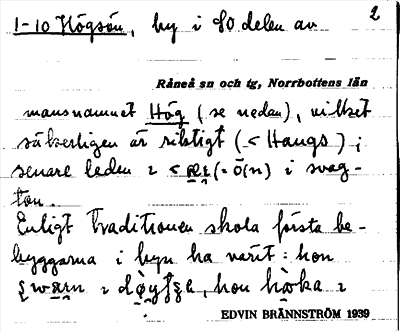 1-10 Högsön, by i SO delen av 2
Råneå sn och tg, Norrbottens län
mansnamnet Hög (se nedan), vilket
säkerligen är riktigt (< Haugs);
senare leden i svag-
ton.
Enligt traditionen skola första be-
byggarna i byn ha varit: hon
hon
EDVIN BRÄNNSTRÖM 1939